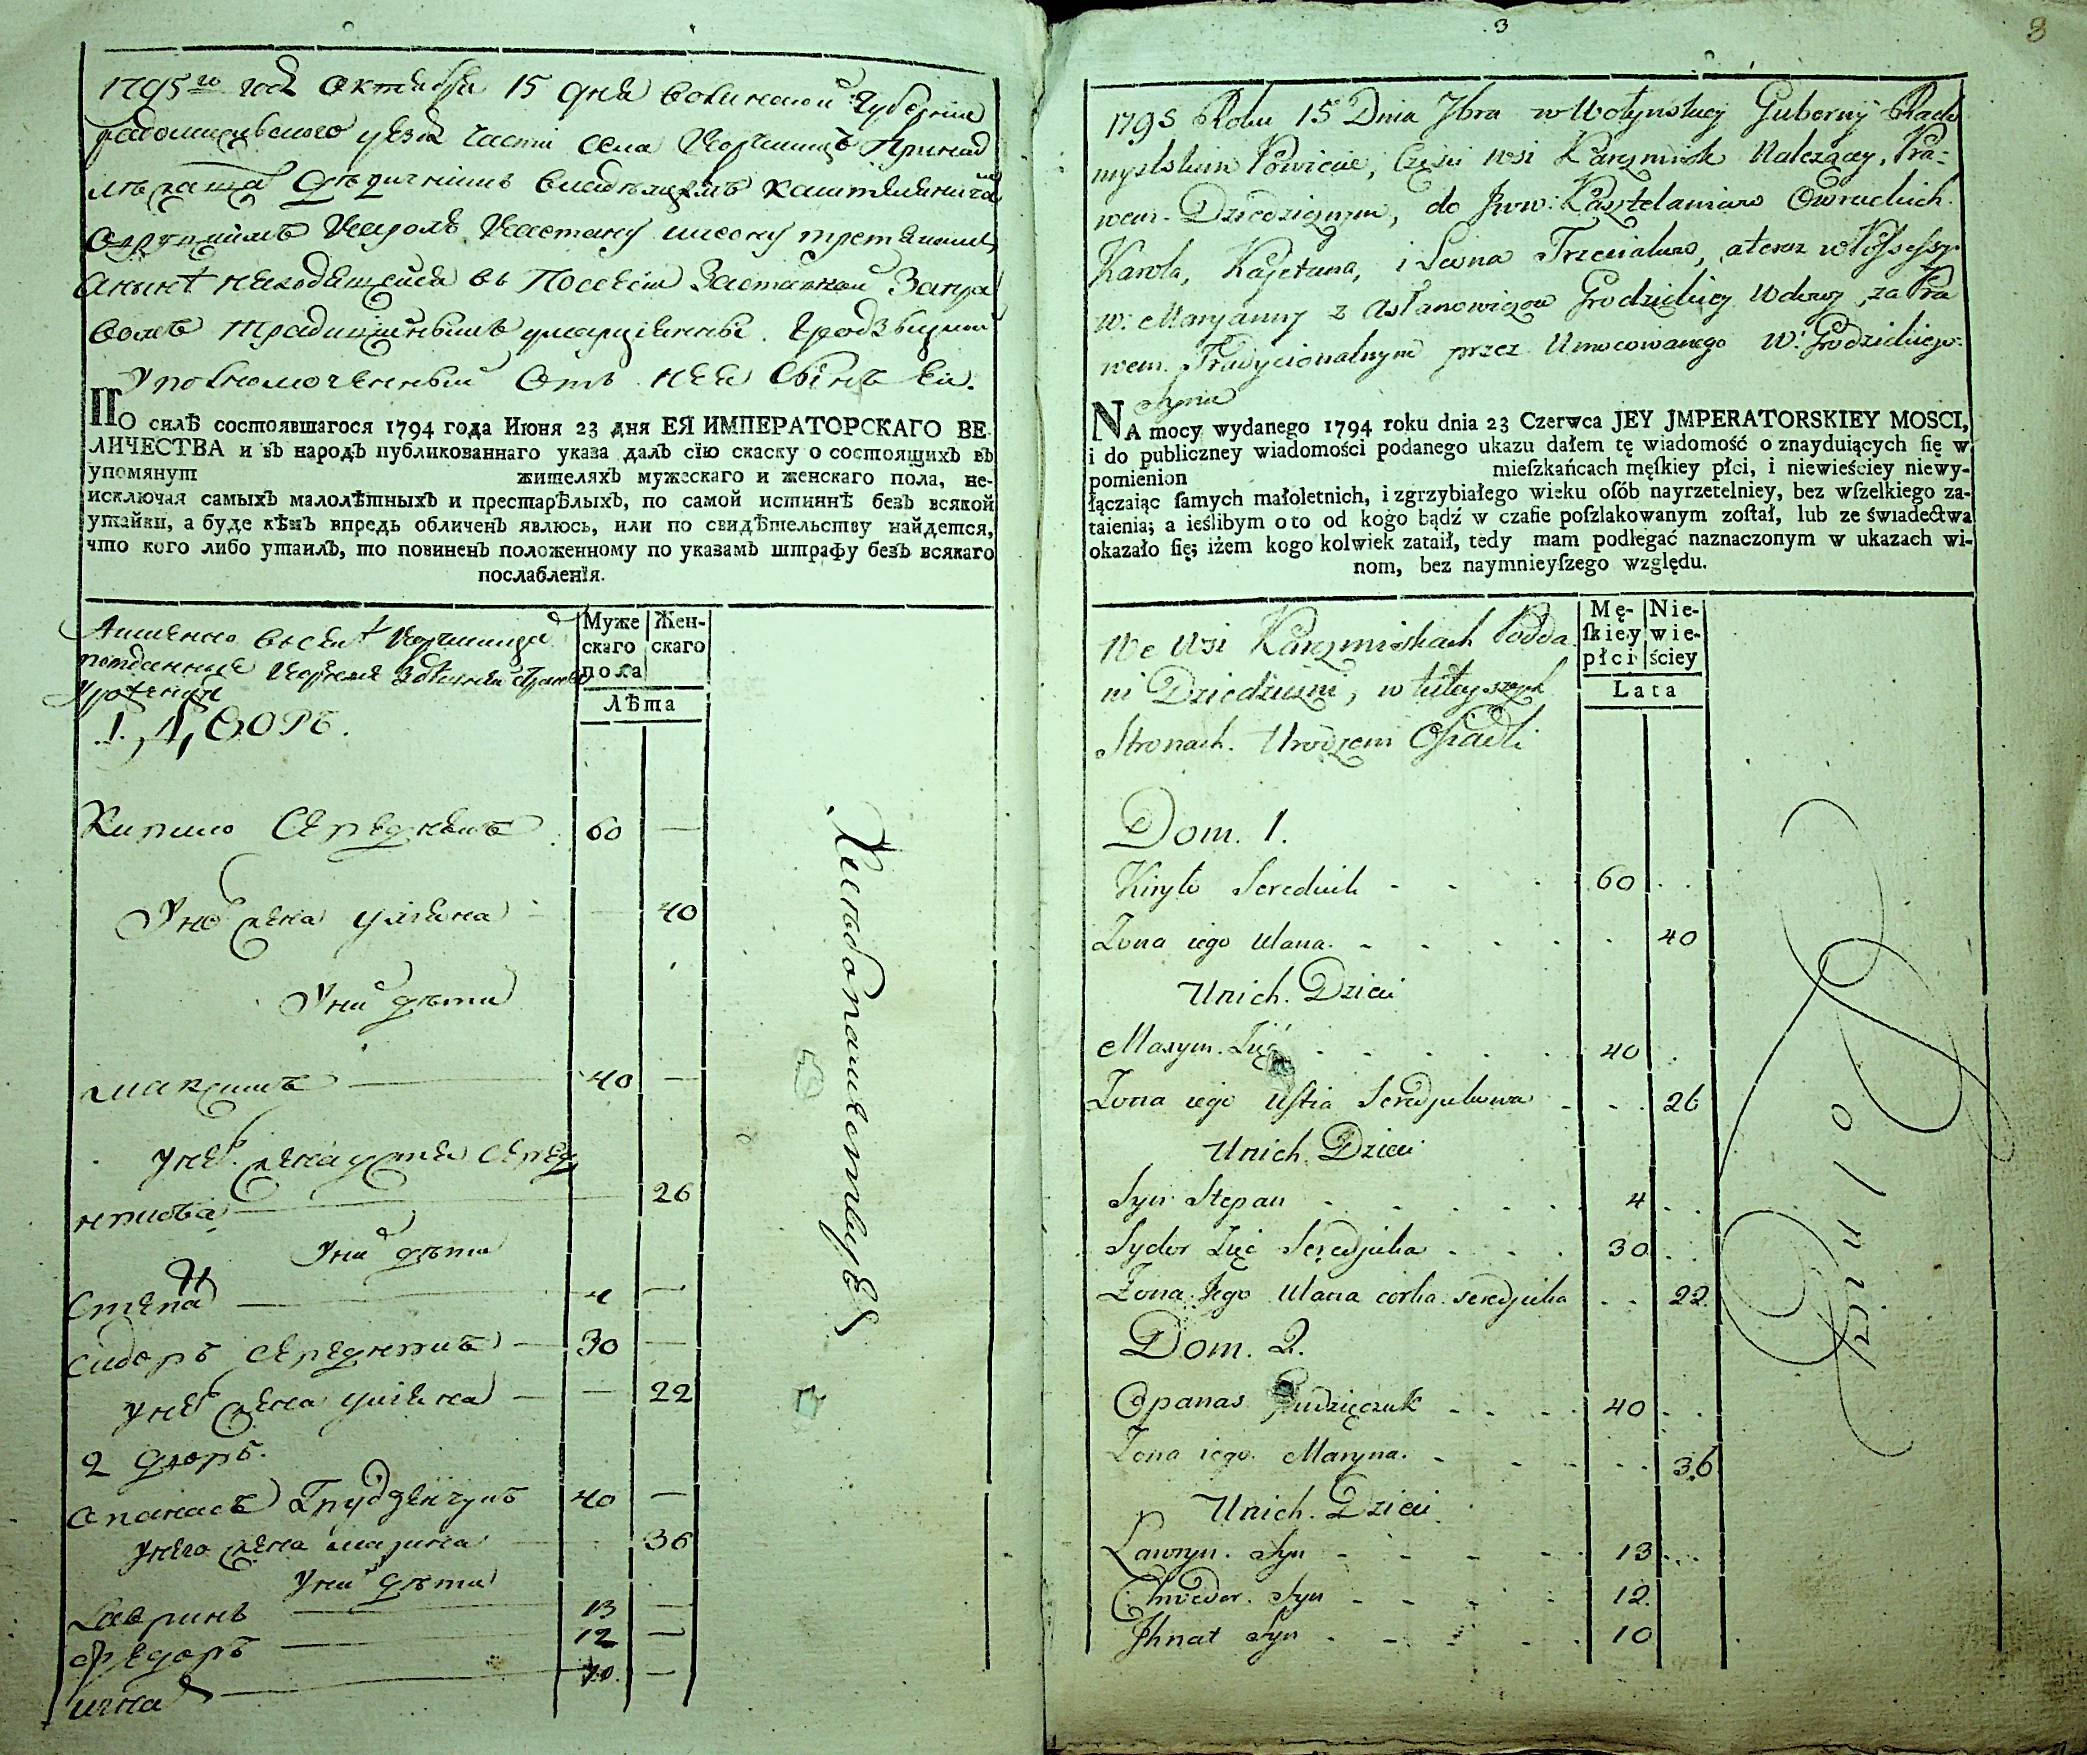 1795го года Октября 15 дня Волинской Губернии
радомисльского уезда части села Корчмищъ Принад
лежаща дедичнимъ владельцамъ каштеляничамъ
Овруцкимъ Каролю Каетану
анынѣ находящейся въ Посесіи Заставной Запра
вомъ традиційнымъ
Уполномоченный Отъ нея
ПО силѢ состоявшагося 1794 года Июня 23 дня ЕЯ ИМПЕРАТОРСКАГО ВЕ-
ЛИЧЕСТВА и въ народъ публикованнаго указа далъ сїю скаску о состоящихъ въ
упомянут жителяхъ мужескаго и женскаго пола, не-
исключая самыхъ малолѣтныхъ и престарѣлыхъ, по самой истиннѣ безъ всякой
утайки, а буде кѣмъ впредь обличенъ явлюсь, или по свидѣтельству найдется,
что кого либо утаилъ, то повиненъ положенному по указамъ штрафу безъ всякаго
послабленїя.
Муже
скаго
пола
Жен-
скаго
Лѣта
1. ДВОРЪ.
Кирило Середникъ 60 —
У него жена уляна — 40
У них дети
максимъ — 40 —
У него жена устя Серед
никова — 26
У них дети
Степан — 4 —
Сидоръ Середникъ — 30 —
У него жена уляна — — 22
2 дворъ.
Опанасъ Грудзенчукъ 40 —
У него жена марина 36
У них дети
Лавринъ — 13 —
Федоръ — 12 —
игнат — 10 —
3
3
1795 Roku 15 Dnia 7bra w Wołynskiey Guberny Rado
myslskim Powicie, Części wsi Karzmisk Nalezącey, Pra=
wem Dziedzicznym, do Jww: Kasztelaniców Owruckich
Karola, Kajetana, i Leona Trzeciaków, a teraz w Possessyi
W: Maryanny z Astanowiczów Grodzickiey Wdowy, za Pra
wem Tradycionalnym przez Umocowanego W: Grodzickiego
Syna
NA mocy wydanego 1794 roku dnia 23 Czerwca JEY JMPERATORSKIEY MOSCI,
i do publiczney wiadomości podanego ukazu dałem tę wiadomość o znayduiących ſię w
pomienion mieſzkańcach męſkiey płci, i niewieściey niewy-
łączaiąc ſamych małoletnich, i zgrzybiałego wieku oſób nayrzetelniey, bez wſzelkiego za-
taienia; a ieślibym o to od kogo bądź w czaſie poſzlakowanym zoſtał, lub ze świadectwa
okazało ſię; iżem kogo kolwiek zataił, tedy mam podlegać naznaczonym w ukazach wi-
nom, bez naymnieyſzego względu.
We Wsi Karzmiskach Podda
ni Dziedziczni, w tuteyszych
Stronach Urodzeni Osiadli
Mę-
ſkiey
płci
Nie-
wie-
ściey
Lata
Dom. 1.
Kiryło Serednik 60
Zona iego Ulana 40
Unich Dzieci
Maxym 40
Zona iego Ustia Seredjukowa 26
Unich Dzieci
Syn Stepan 4
Sydor Zięć Seredjuka 30
Zona Jego Ulana corka Seredjuka 22
Dom. 2.
Opanas 40
Zona iego Maryna 36
Unich Dzieci
Ławryn Syn 13
Chwedor Syn 12
Jhnat Syn 10